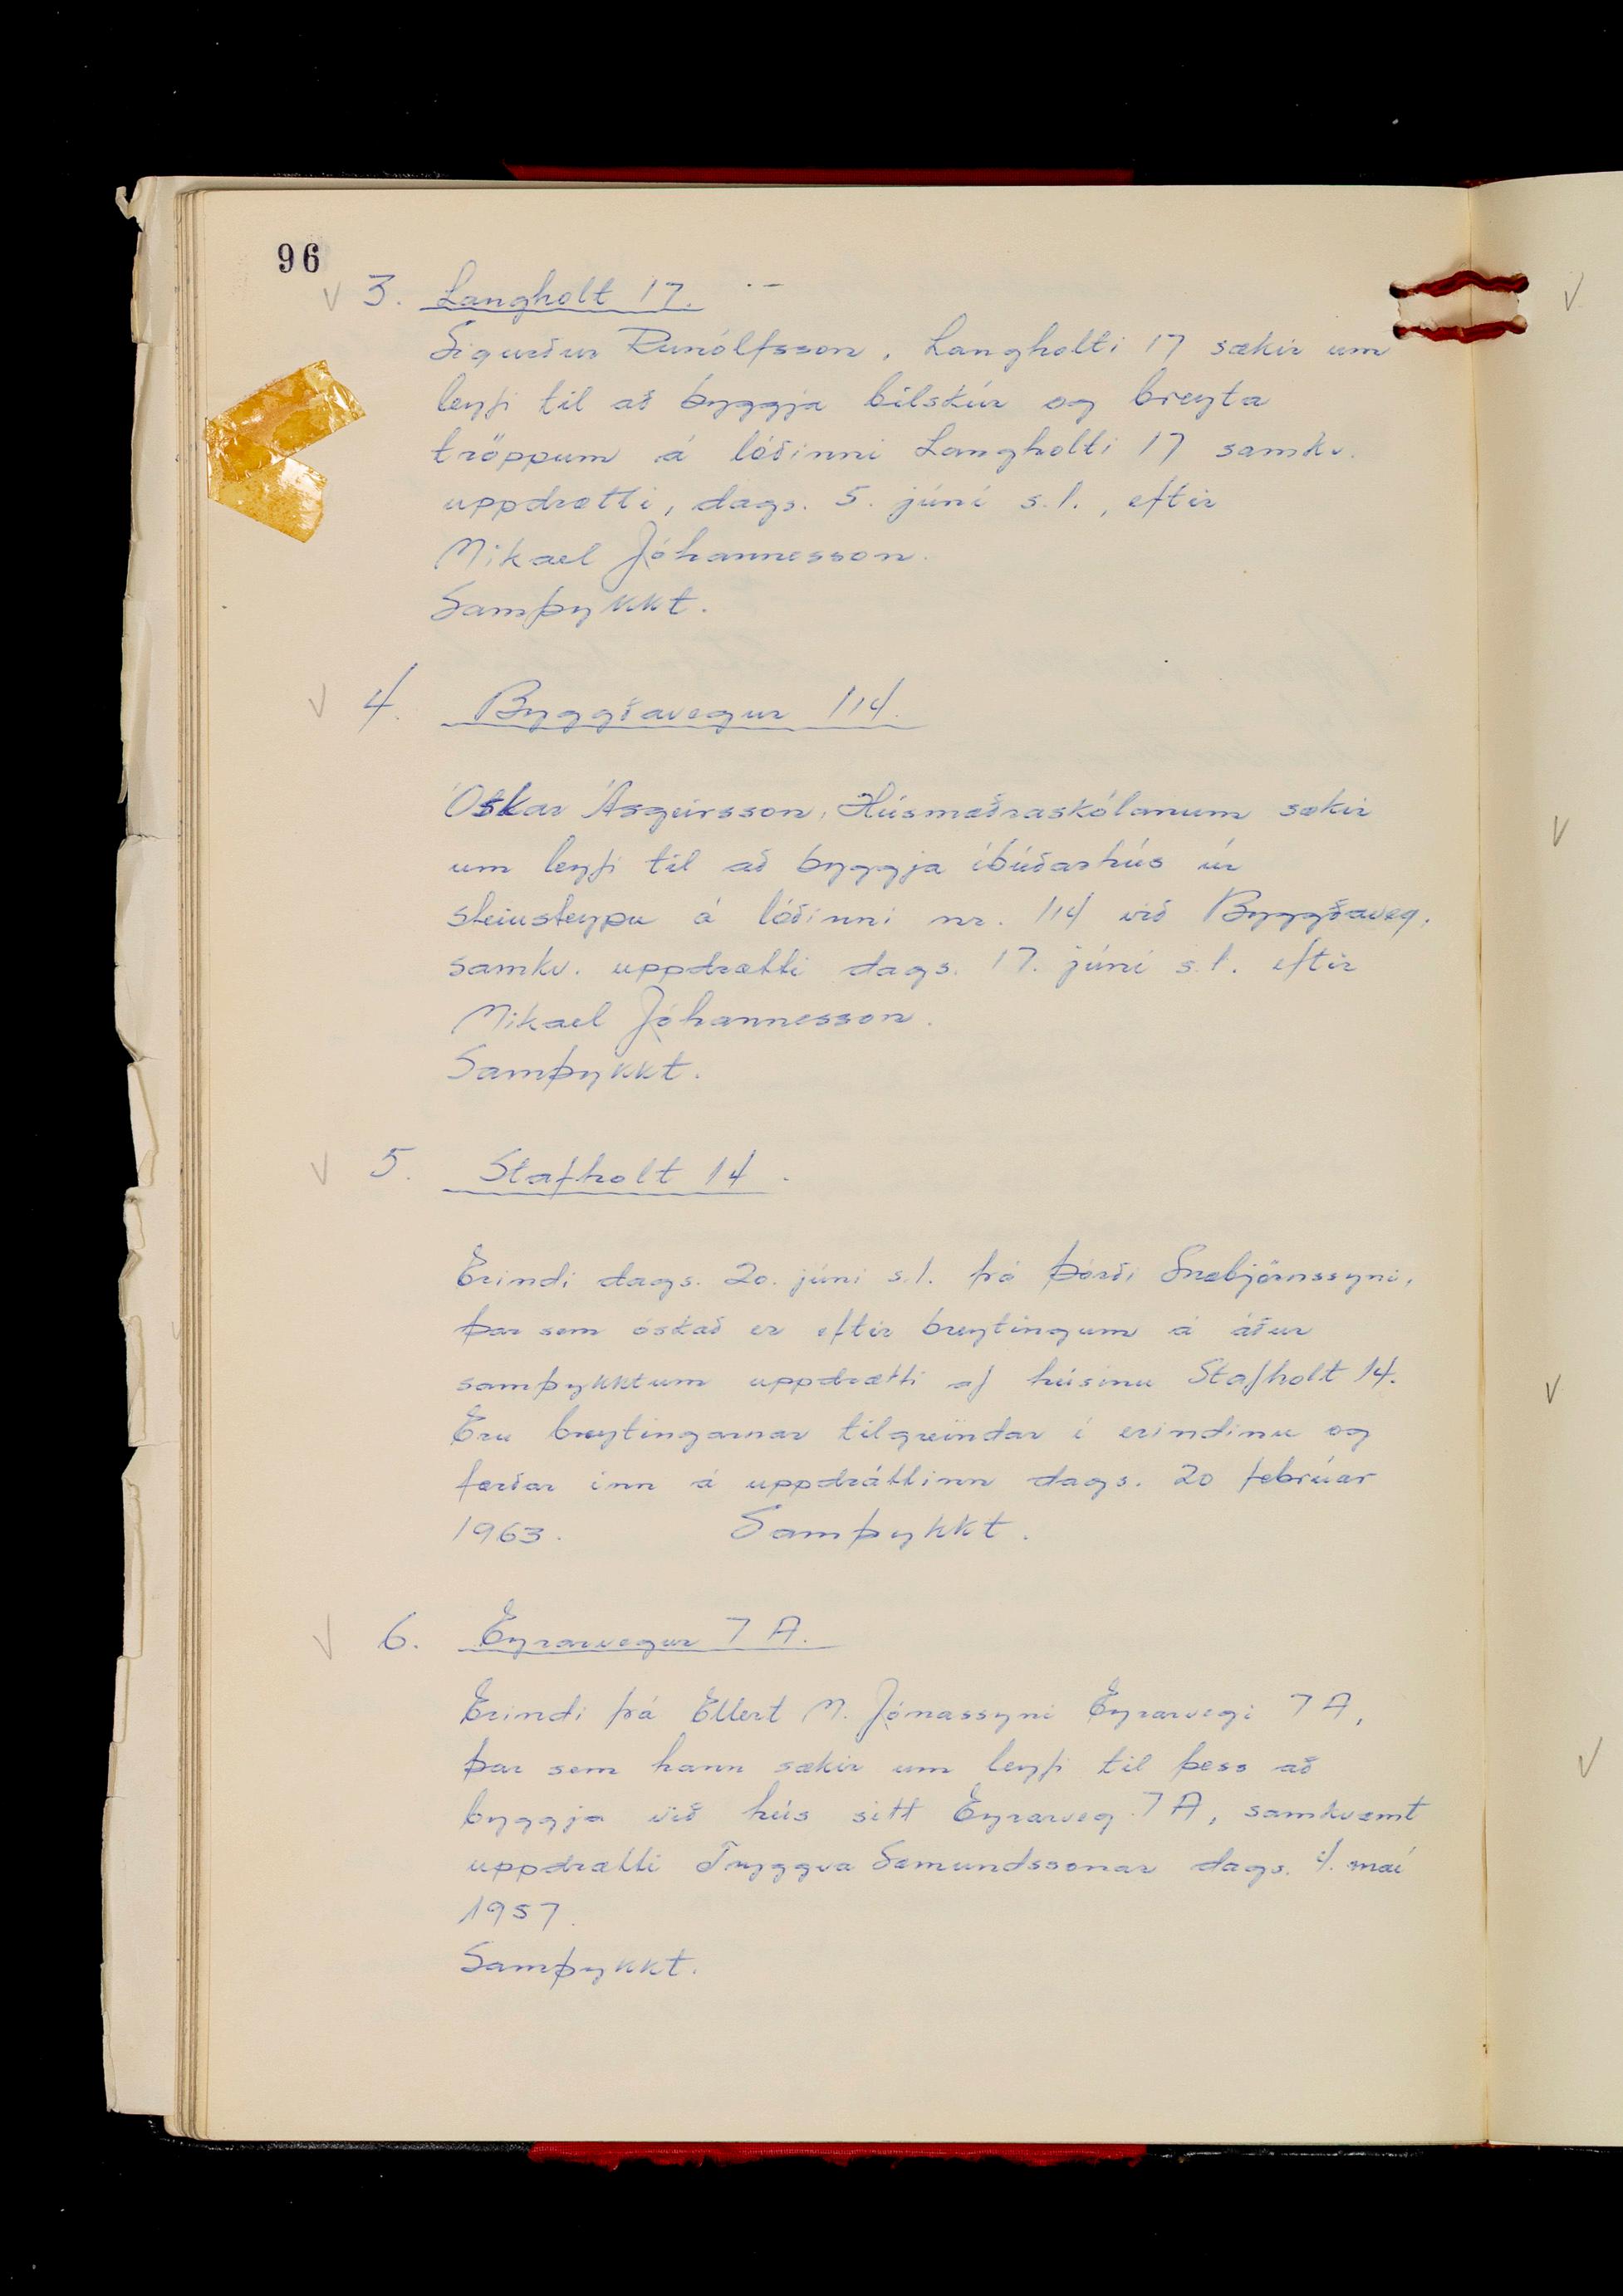 96
3. Langholt 17.
Sigurður Runólfsson, Langholti 17 sækir um
leyfi til að byggja bílskúr og breyta
tröppum á lóðinni Langholti 17 samkv.
uppdrætti, dags. 5. júní s.l., eftir
Mikael Jóhannesson.
Samþykkt.
4. Byggðavegur 114.
Óskar Ásgeirsson, Húsmæðraskólanum sækir
um leyfi til að byggja íbúðarhús úr
steinsteypu á lóðinni nr. 114 við Byggðaveg,
samkv. uppdrætti dags. 17. júní s.l. eftir
Mikael Jóhannesson.
Samþykkt.
5. Stafholt 14.
Erindi dags. 20. júní s.l. frá Þórði Snæbjörnssyni,
þar sem óskað er eftir breytingum á áður
samþykktum uppdrætti af húsinu Stafholt 14.
Eru breytingarnar tilgreindar í erindinu og
færðar inn á uppdráttinn dags. 20 febrúar
1963. Samþykkt.
6. Eyrarvegur 7 A.
Erindi frá Ellert M. Jónassyni Eyrarvegi 7 A,
þar sem hann sækir um leyfi til þess að
byggja við hús sitt Eyrarveg 7 A, samkvæmt
uppdrætti Tryggva Sæmundssonar dags. maí
1957.
Samþykkt.